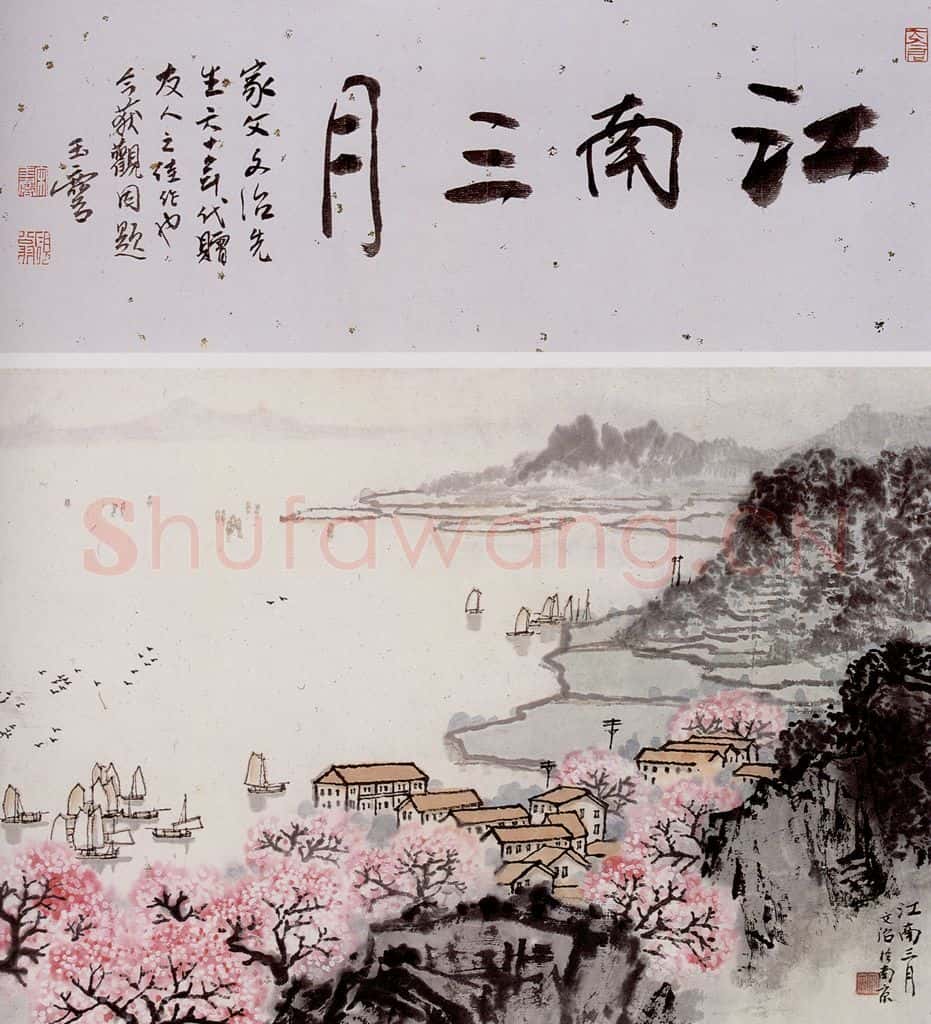 江南三月
家父文治先
生六十年代贈
友人之佳作也
今获觀因題
玉
Shufawang.CN
江南三月
文治於南京